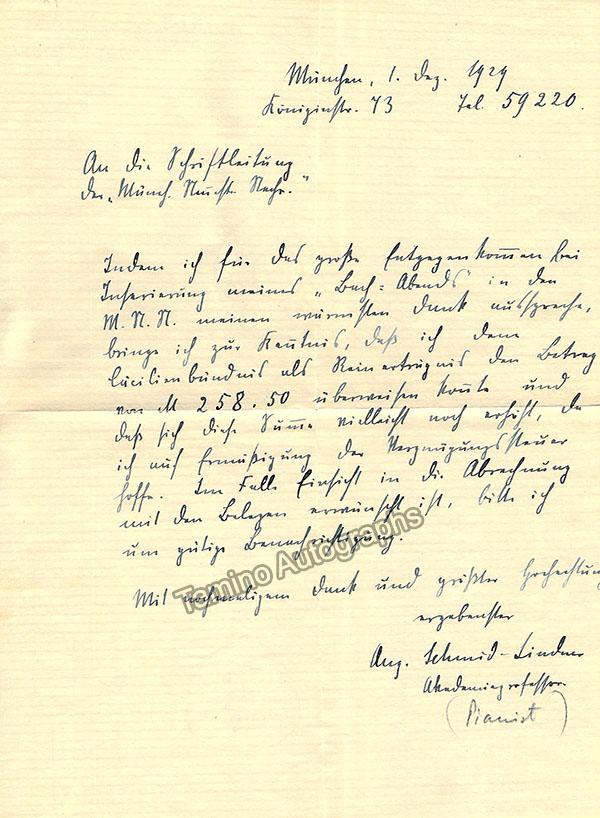 München, 1. Dez. 1929
Königinstr. 73 Tel. 59220.
An die Schriftleitung
der „Münch. Neuest. Nachr."
Indem ich für das große Entgegenkommen bei
Inserierung meines „Bach-Abends" in den
M.N.N. meinen wärmsten Dank ausspreche,
bringe ich zur Kenntnis, daß ich dem
Cäcilienbündnis als Reinerträgnis den Betrag
von M 258.50 überweisen konnte und
daß sich diese Summe vielleicht noch erhöht, da
ich auf Ermäßigung der Vergnügungssteuer
hoffe. Im Falle Einsicht in die Abrechnung
mit den Belegen erwünscht ist, bitte ich
um gütige Benachrichtigung.
Mit nochmaligem Dank und größter Hochachtung
ergebenster
Aug. Schmid-Lindner
Akademieprofessor.
(Pianist)
Tamino Autographs